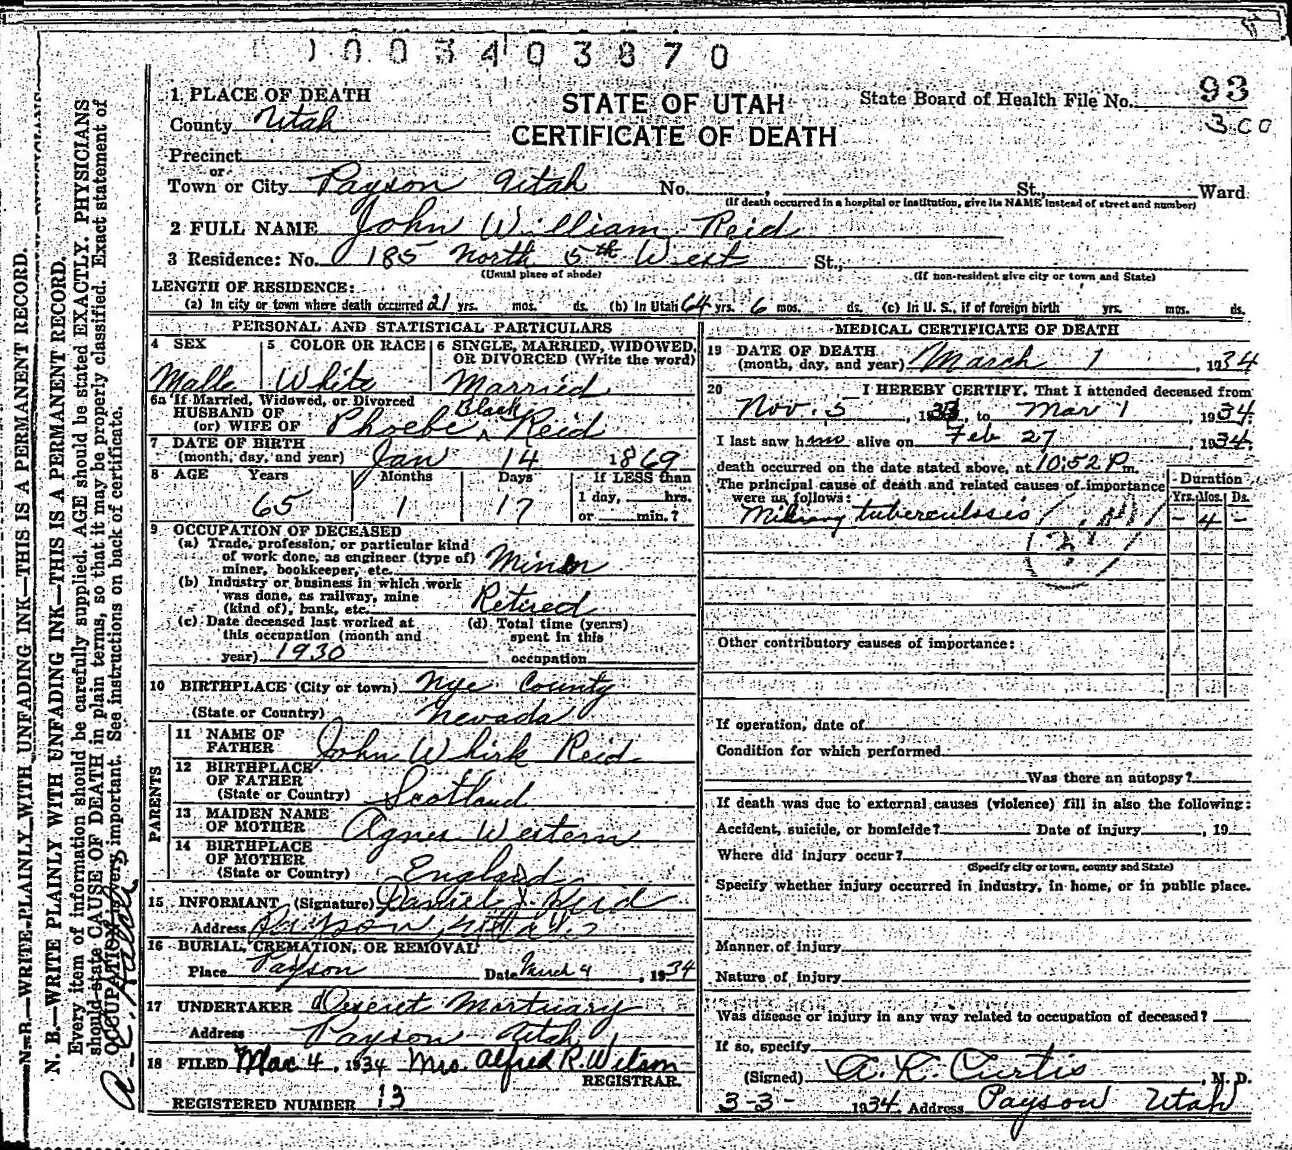 1003403870
1. PLACE OF DEATH
STATE OF UTAH
State Board of Health File No. 93
County Utah
CERTIFICATE OF DEATH
300
Precinct
or
Town or City Payson Utah No. , St., Ward
(If death occurred in a hospital or institution, give its NAME instead of street and number)
2 FULL NAME John William Reid
3 Residence: No. 185 North 5th West St.,
(Usual place of abode) (If non-resident give city or town and State)
LENGTH OF RESIDENCE:
(a) In city or town where death occurred 21 yrs. mos. ds. (b) In Utah 64 yrs. 6 mos. ds. (c) In U. S., if of foreign birth yrs. mos. ds.
PERSONAL AND STATISTICAL PARTICULARS
4 SEX 5 COLOR OR RACE 6 SINGLE, MARRIED, WIDOWED,
OR DIVORCED (Write the word)
Malle White Married
6a If Married, Widowed, or Divorced
HUSBAND OF
(or) WIFE OF Phoebe Black Reid
7 DATE OF BIRTH
(month, day, and year) Jan 14 1869
8 AGE Years Months Days If LESS than
65 1 17 1 day, hrs.
or min.?
9 OCCUPATION OF DECEASED
(a) Trade, profession, or particular kind
of work done, as engineer (type of)
miner, bookkeeper, etc. Miner
(b) Industry or business in which work
was done, as railway, mine
(kind of), bank, etc. Retired
(c) Date deceased last worked at
this occupation (month and
year) 1930
(d) Total time (years)
spent in this
occupation
10 BIRTHPLACE (City or town) Nye County
(State or Country) Nevada
PARENTS
11 NAME OF
FATHER John Whirk Reid
12 BIRTHPLACE
OF FATHER
(State or Country) Scotland
13 MAIDEN NAME
OF MOTHER Agnes Western
14 BIRTHPLACE
OF MOTHER
(State or Country) England
15 INFORMANT (Signature) Daniel J Reid
Address Payson, Utah
16 BURIAL, CREMATION, OR REMOVAL
Place Payson Date March 4, 1934
17 UNDERTAKER Deseret Mortuary
Address Payson Utah
18 FILED Mar 4, 1934 Mrs. Alfred R. Wilson
REGISTRAR.
REGISTERED NUMBER 13
MEDICAL CERTIFICATE OF DEATH
19 DATE OF DEATH
(month, day, and year) March 1, 1934
20 I HEREBY CERTIFY, That I attended deceased from
Nov. 5, 1933, to Mar 1 1934.
I last saw him alive on Feb 27, 1934.
death occurred on the date stated above, at 10:52 P.m.
The principal cause of death and related causes of importance
were as follows:
Duration
Yrs. Mos. Ds.
Miliary tuberculosis - 4 -
Other contributory causes of importance:
If operation, date of
Condition for which performed
Was there an autopsy?
If death was due to external causes (violence) fill in also the following:
Accident, suicide, or homicide? Date of injury , 19
Where did injury occur?
(Specify city or town, county and State)
Specify whether injury occurred in industry, in home, or in public place.
Manner of injury
Nature of injury
Was disease or injury in any way related to occupation of deceased?
If so, specify
(Signed) A. R. Curtis, M. D.
3-3- 1934. Address Payson Utah
N. B.—WRITE PLAINLY WITH UNFADING INK—THIS IS A PERMANENT RECORD.
N. B.—WRITE PLAINLY WITH UNFADING INK—THIS IS A PERMANENT RECORD.
Every item of information should be carefully supplied. AGE should be stated EXACTLY. PHYSICIANS
should state CAUSE OF DEATH in plain terms, so that it may be properly classified. Exact statement of
OCCUPATION is very important. See instructions on back of certificate.